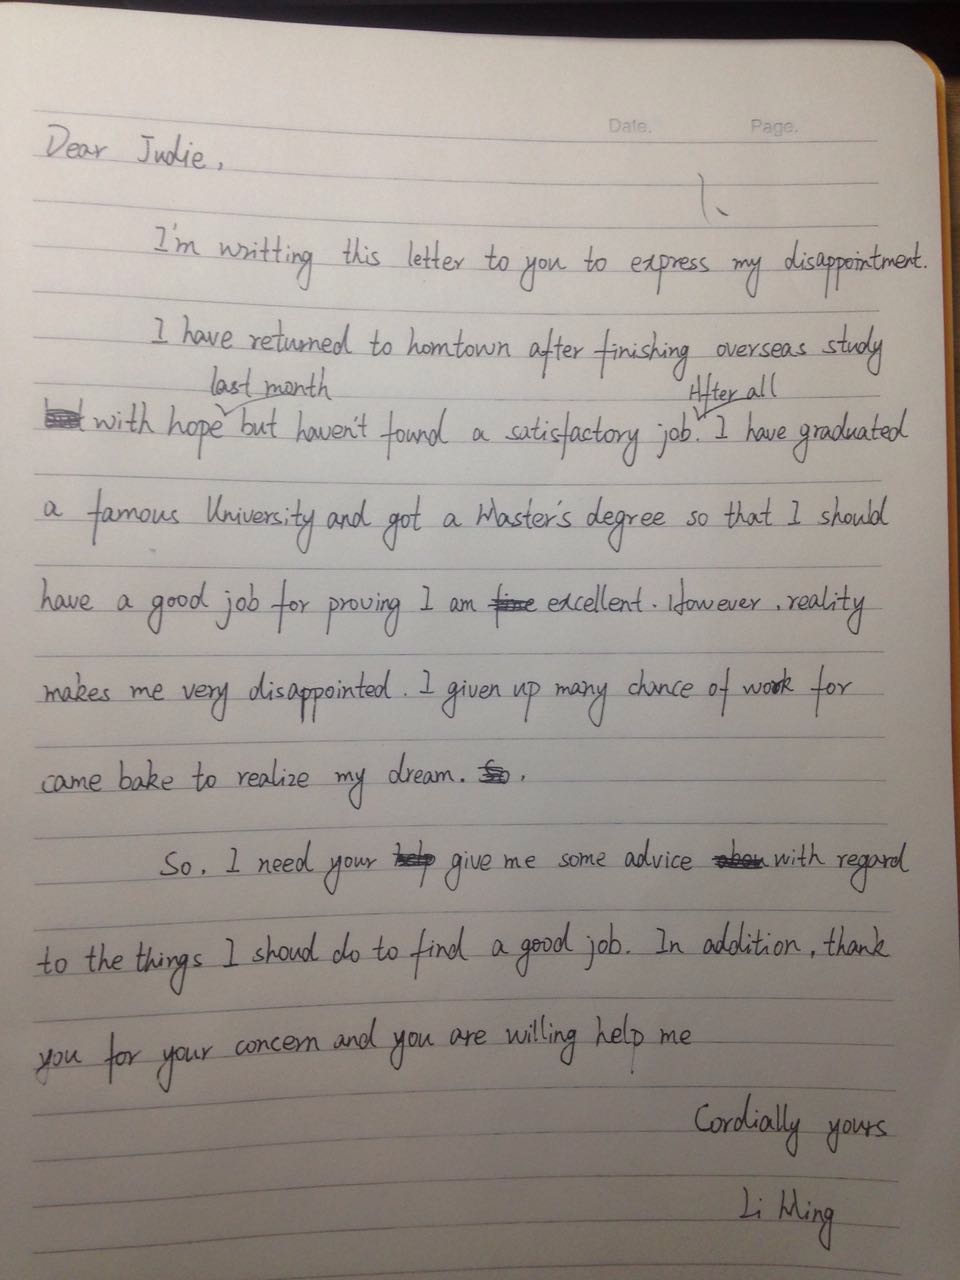 Date. Page.
Dear Judie,
I'm writting this letter to you to express my disappointment.
I have returned to homtown after finishing overseas study
last month After all
with hope but haven't found a satisfactory job. I have graduated
a famous University and got a Master's degree so that I should
have a good job for proving I am excellent. However, reality
makes me very disappointed. I given up many chance of work for
came bake to realize my dream.
So, I need your give me some advice with regard
to the things I shoud do to find a good job. In addition, thank
you for your concern and you are willing help me
Cordially yours
Li Ming